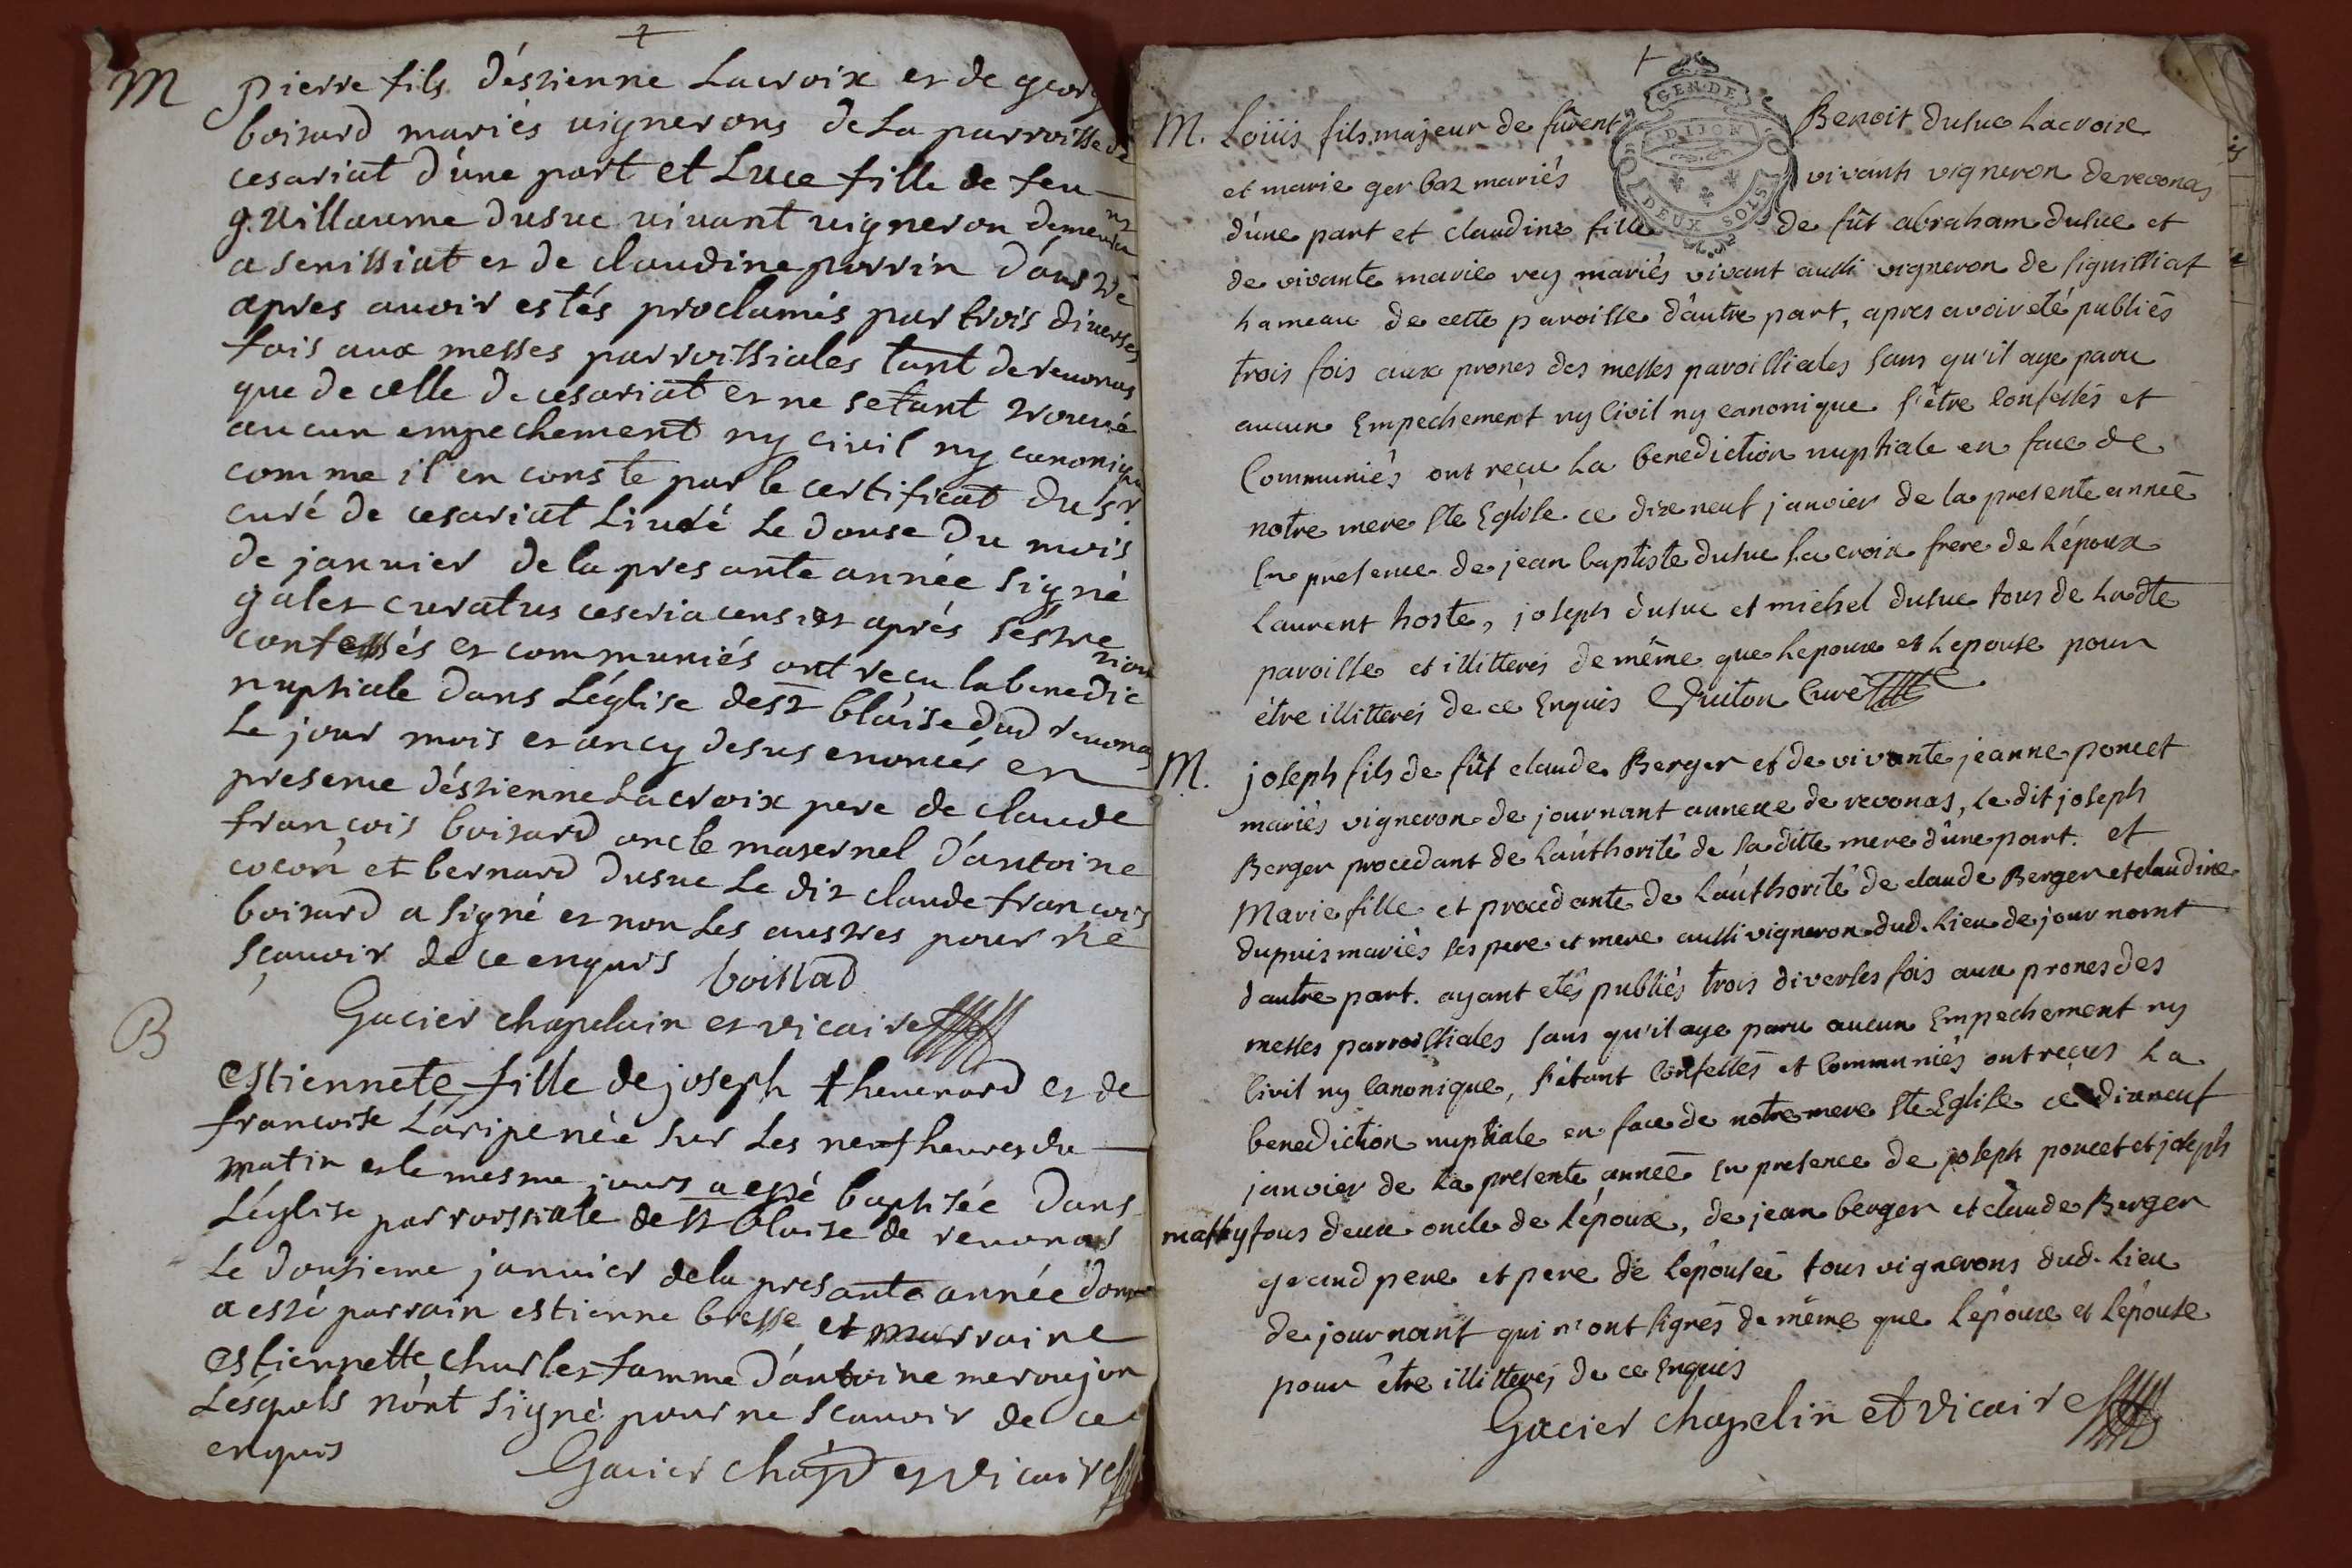 M pierre fils d'éstienne Lacroix et de georg
boisard mariés uignerons de La parroisse de
cesariat d'úne part et Luce fille de feu
guillaume dusuc uiuant uigneron demeurant
a senissiat et de claudine perrin d'autre
apres auoir estés proclamés par trois diuerses
fois aux messes parroissiales tant de reuonas
que de celle de cesariat et ne setant trouué
aucun empechement ny civil ny canonique
comme il en conste par le certificat du sr.
curé de cesariat Liuré Le douse du mois
de januier de la presante année signé
galet curatus ceseriacensis et aprés séstre
confessés et communiés ont recu la benediction
nuptiale dans Léglise de st blaise dud reuonas
Le jour mois et an cy desus enoncés en
presence déstienne Lacroix pere de claude
françois boisard oncle maternel d'antoine
cocon et bernard dusuc Le dit claude françois
boisard a signé et non Les austres pour ne
sçauoir de ce enquis boissad
Gacier chapelain et vicaire
B estiennete fille de joseph theuenard et de
francoise Laripe née sur Les neuf heures du
matin et le mesme jours a esté baptisée dans
Léglise parroissiale de st blaise de reuonas
Le dousieme januier de la presante année dont
a esté parrain estienne bresse et marraine
estiennette charles famme d'antoine meroujon
Lésquels nónt signé pour ne scauoir de ce
enquis Gacier chapp et vicaire
M. Loüis fils majeur de fûrent Benoit dusuc Lacroix
et marie gerbaz mariés vivants vigneron de revonas
d'úne part et claudine fille de fût abraham dusuc et
de vivante marie rey mariés vivant aussi vigneron de signissiat
hameau de cette paroisse d'autre part, apres avoir eté publiés
trois fois aux prones des messes paroissiales sans qu'il aye paru
aucun Empechement ny Civil ny canonique s'être Confessés et
Communiés ont reçu La benediction nuptiale en face de
notre mere Ste Eglise ce dix neuf janvier de la presente année
En presence de jean baptiste dusuc la croix frere de L'époux
Laurent hoste, joseph dusuc et michel dusuc tous de Ladte
paroisse et illitterés de même que Lepoux et Lepouse pour
être illitterés de ce Enquis Curé
GEN. DE
DIJON
DEUX SOLS
M. joseph fils de fût claude Berger et de vivante jeanne poncet
mariés vigneron de journant annexe de revonas, Le dit joseph
Berger procedant de L'aúthorité de sa ditte mere d'úne part. et
Marie fille et procedante de L'aúthorité de claude Berger et claudine
dupuis mariés ses pere et mere aussi vigneron dud. Lieu de journant
d'autre part. ayant etés publiés trois diverses fois aux prones des
messes parroissiales sans qu'il aye paru aucun Empechement ny
Civil ny Canonique, s'étant Confessés et Communiés ont reçus La
benediction nuptiale en face de notre mere Ste Eglise ce dixneuf
janvier de La presente année En presence de joseph poncet et joseph
mathy tous deux oncle de L'époux, de jean berger et claude Berger
grand pere et pere de L'épousée tous vignerons dud. Lieu
de journant qui n'ont signés de même que L'époux et L'épouse
pour être illitterés de ce Enquis
Gacier chapelin et vicaire